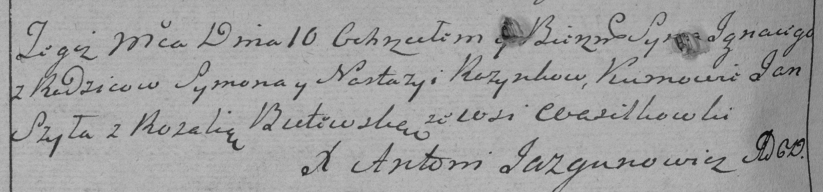 Tegiż Mca Dnia 10 Ochrzciłem y Bierzm Syna Ignacego
z Rodziców Symona y Nastazyi Rozynkow, Kumowie Jan
Szyła z Rozalią Butewską ze wsi Wasilkowki
X Antoni Jazgunowicz